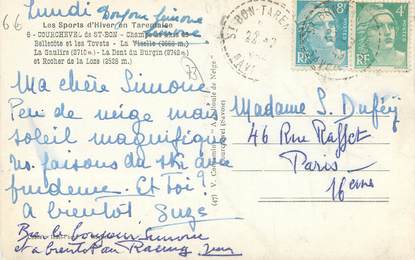 66
Lundi Bonjour Simone
Les Sports d'Hiver en Tarentaise
6 - COURCHEVEL de St-BON - Champ de skis de
Bellecôte et les Tovets - La Vizelle (2662 m.)
La Saulire (2710 m.) - La Dent du Burgin (2742 m.)
et Rocher de la Loze (2528 m.)
73
Ma chère Simone
Peu de neige mais
soleil magnifique
ns. faisons du ski avec
prudence. Et Toi ?
A bientôt Suze
Bien le bonjour Simone
et a bientot au Racing
ST BON-TAREN
SAVOIE
8F
RF
4F
RF
Madame S. Duféÿ
46 Rue Raffet
Paris
16ème